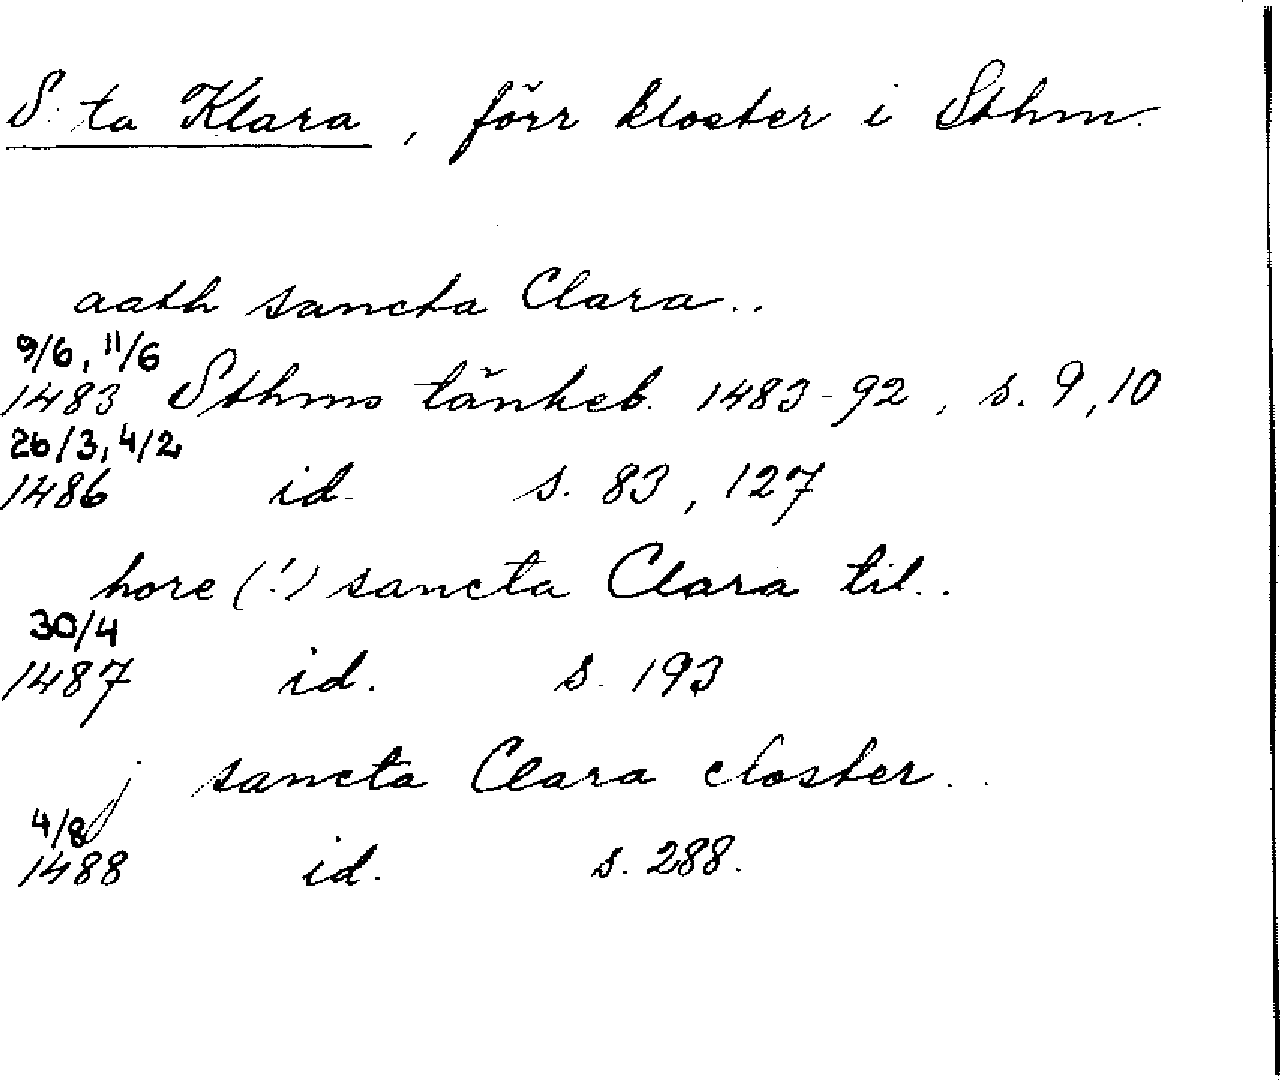 S:ta Klara, förr kloster i Sthm.
aath sancta Clara..
9/6, 11/6
1483 Sthms tänkeb. 1483-92, s. 9, 10
26/3, 4/2
1486 id. s. 83, 127
hore (!) sancta Clara til..
30/4
1487 id. s. 193
j sancta Clara closter..
4/8
1488 id. s. 288.